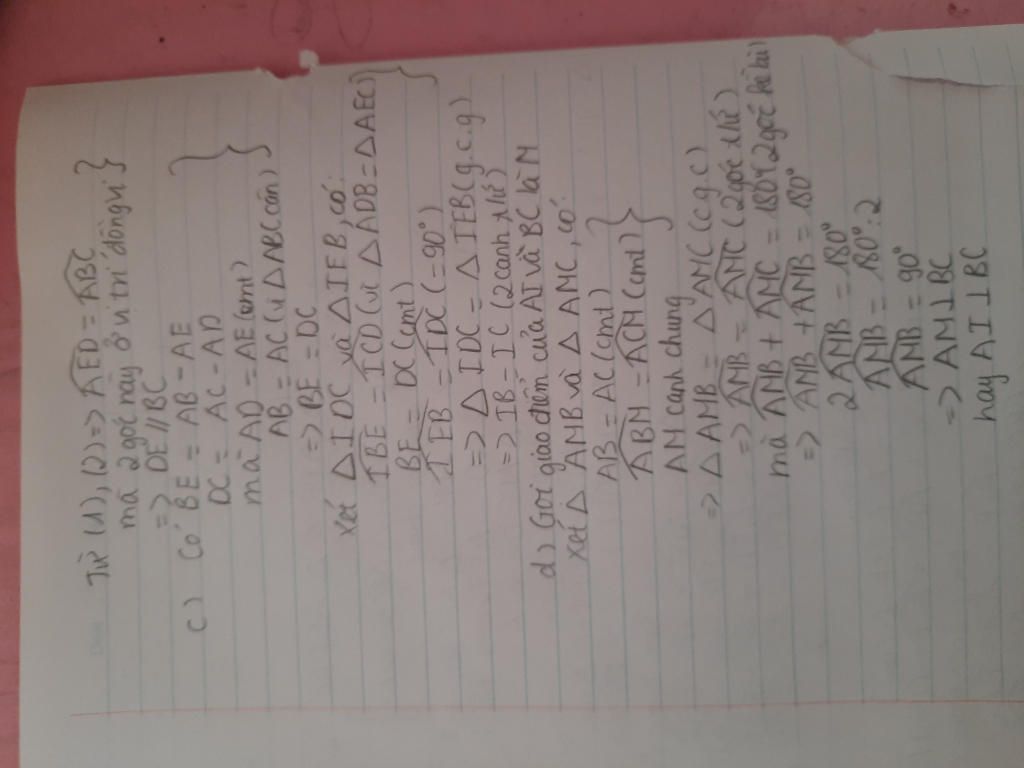 Từ (1), (2) => AED = ABC
mà 2 góc này ở vị trí đồng vị }
=> DE // BC
c) Có BE = AB - AE
DC = AC - AD
mà AD = AE (cmt)
AB = AC (vì △ABC cân) }
=> BE = DC
xét △IDC và △IEB, có:
IBE = ICD (vì △ADB = △AEC)
BE = DC (cmt)
IEB = IDC (= 90°) }
=> △IDC = △IEB (g.c.g)
=> IB = IC (2 cạnh t/ứ)
d) Gọi giao điểm của AI và BC là M
xét △AMB và △AMC, có:
AB = AC (cmt)
ABM = ACM (cmt) }
AM cạnh chung
=> △AMB = △AMC (c.g.c)
=> AMB = AMC (2 góc t/ứ)
mà AMB + AMC = 180° (2 góc kề bù)
=> AMB + AMB = 180°
2AMB = 180°
AMB = 180° : 2
AMB = 90°
=> AM ⊥ BC
hay AI ⊥ BC